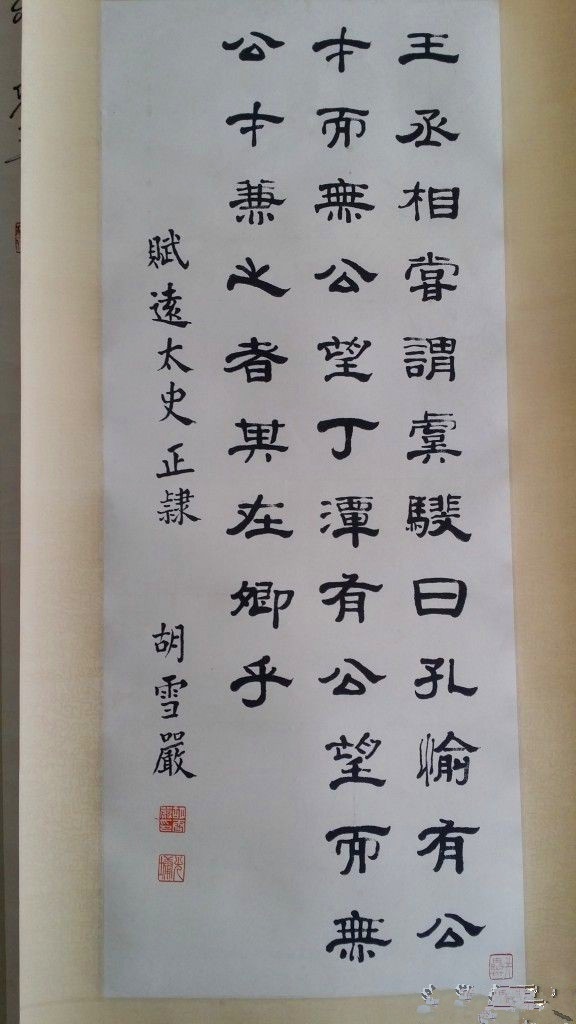 王丞相嘗謂虞駿曰孔愉有公
才而無公望丁潭有公望而無
公才兼之者其在卿乎
賦遠太史正隸
胡雪嚴